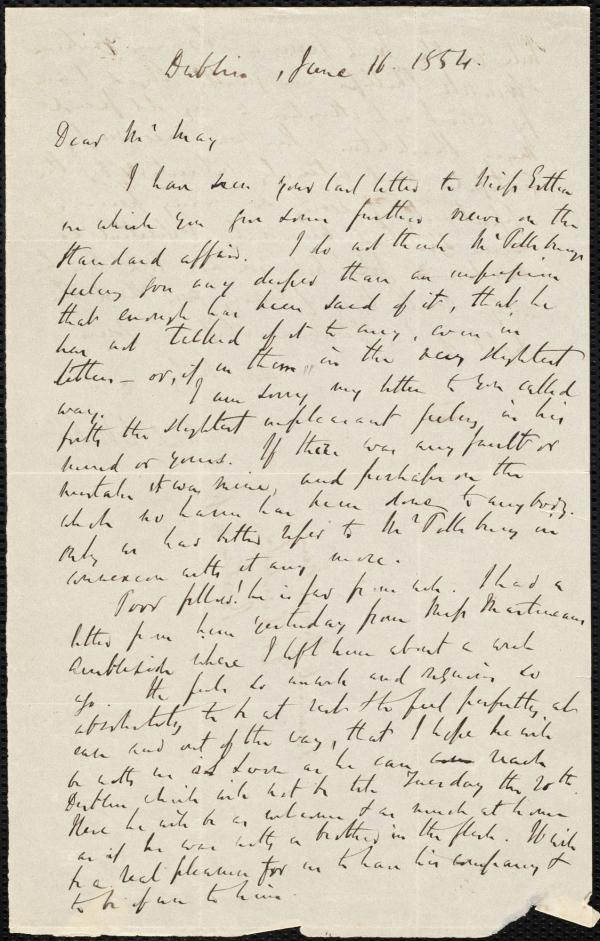 Dublin, June 16. 1854.
Dear Mr May
I have seen your last letter to Miss Estlin
in which you give some further views on the
Standard affair. I do not think Mr Pillsbury
feeling goes any deeper than an impression
that enough has been said of it, that he
has not talked of it to any, even in
letters — or, if in them, in the very slightest
way. I am sorry my letter to you called
forth the slightest unpleasant feeling in his
mind or yours. If there was any fault or
mistake it was mine, and perhaps on the
whole no harm has been done to anybody.
Only we had better refer to Mr Pillsbury in
connexion with it any more.
Poor fellow! he is far from well. I had a
letter from him yesterday from Miss Martineau's
Ambleside where I left him about a week
ago. He feels so unwell and requires so
absolutely to be at rest & to feel perfectly at
ease and out of the way, that I hope he will
be with us as soon as he can reach
Dublin which will not be till Tuesday the 20th.
Here he will be as welcome & as much at home
as if he was with a brother in the flesh. It will
be a real pleasure for us to have his company &
to be of use to him.